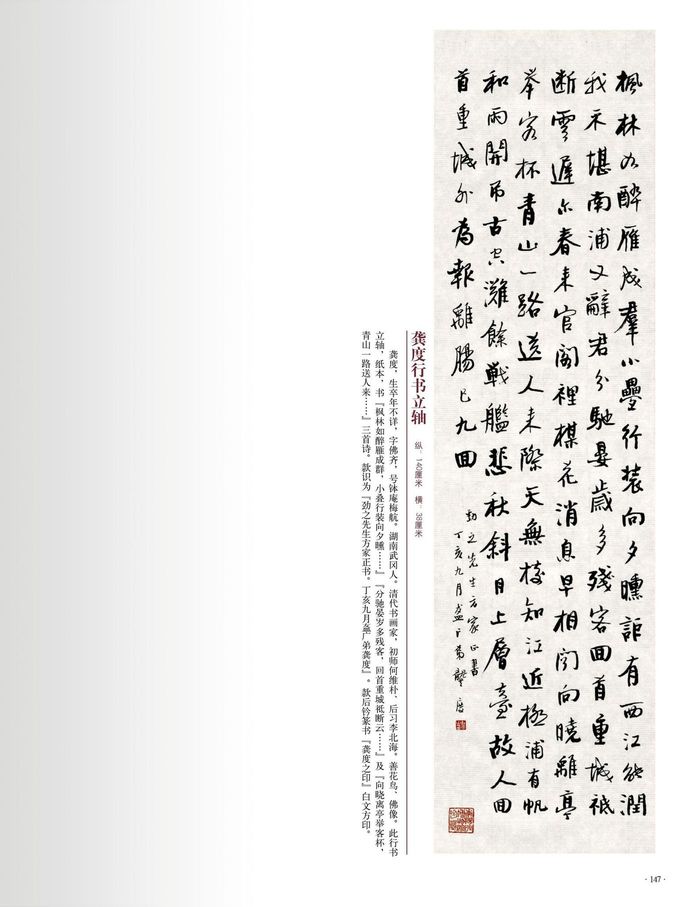 枫林如醉雁成羣小疊行装向夕曛詎有西江能潤
我不堪南浦又辭君分馳晏歲多殘客回首重城祗
断雲遅尔春来官閣裡楳花消息早相闻向曉離亭
举客杯青山一路送人来際天無樹知江近極浦有帆
和雨開吊古空灘餘戦艦悲秋斜日上層臺故人回
首重城外為報離腸已九回
劲之先生方家正书
丁亥九月盋厂弟龔度
龚度行书立轴
纵：148厘米 横：38厘米
龚度，生卒年不详，字佛齐，号钵庵梅航。湖南武冈人。清代书画家，初师何维朴，后习李北海。善花鸟、佛像。此行书
立轴，纸本，书『枫林如醉雁成群，小叠行装向夕曛……』『分驰晏岁多残客，回首重城祗断云……』及『向晓离亭举客杯，
青山一路送人来……』三首诗。款识为『劲之先生方家正书。丁亥九月盋厂弟龚度』。款后钤篆书『龚度之印』白文方印。
·147·